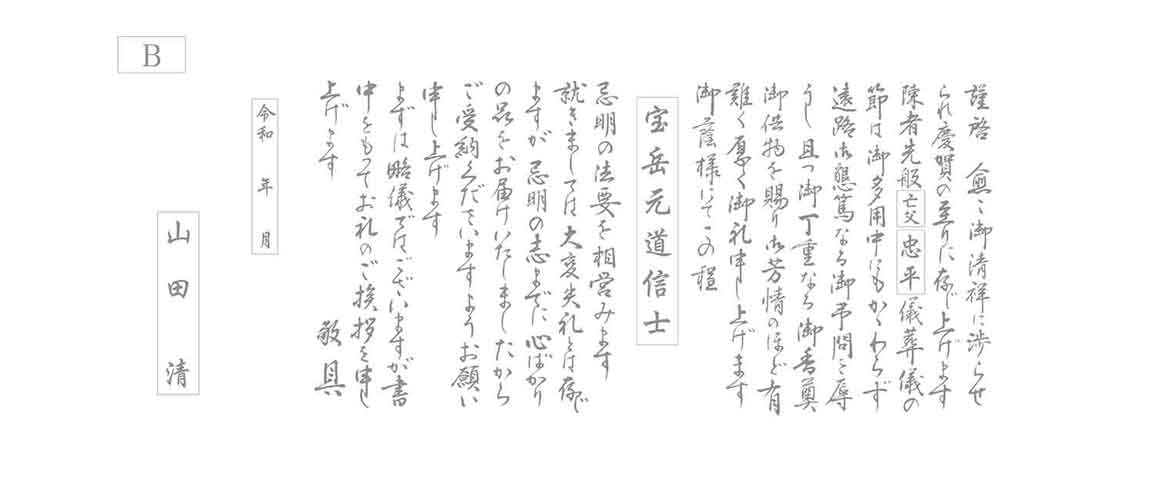 B
謹啓　愈々御清祥に渉らせ
られ慶賀の至りに存じ上げます
陳者先般亡父忠平儀葬儀の
節は御多用中にもかゝわらず
遠路御懇篤なる御弔問を辱
うし且つ御丁重なる御香奠
御供物を賜り御芳情のほど有
難く厚く御礼申し上げます
御蔭様にてこの程
宝岳元道信士
忌明の法要を相営みます
就きましては大変失礼とは存じ
ますが忌明の志までに心ばかり
の品をお届けいたしましたから
ご受納くださいますようお願い
申し上げます
まずは略儀ではございますが書
中をもってお礼のご挨拶を申し
上げます
敬具
令和　年　月
山田　清